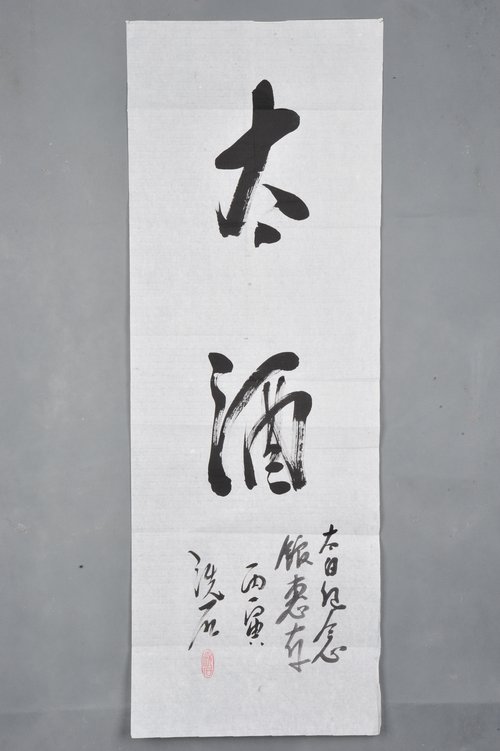 太酒
太白纪念
馆惠存
丙寅